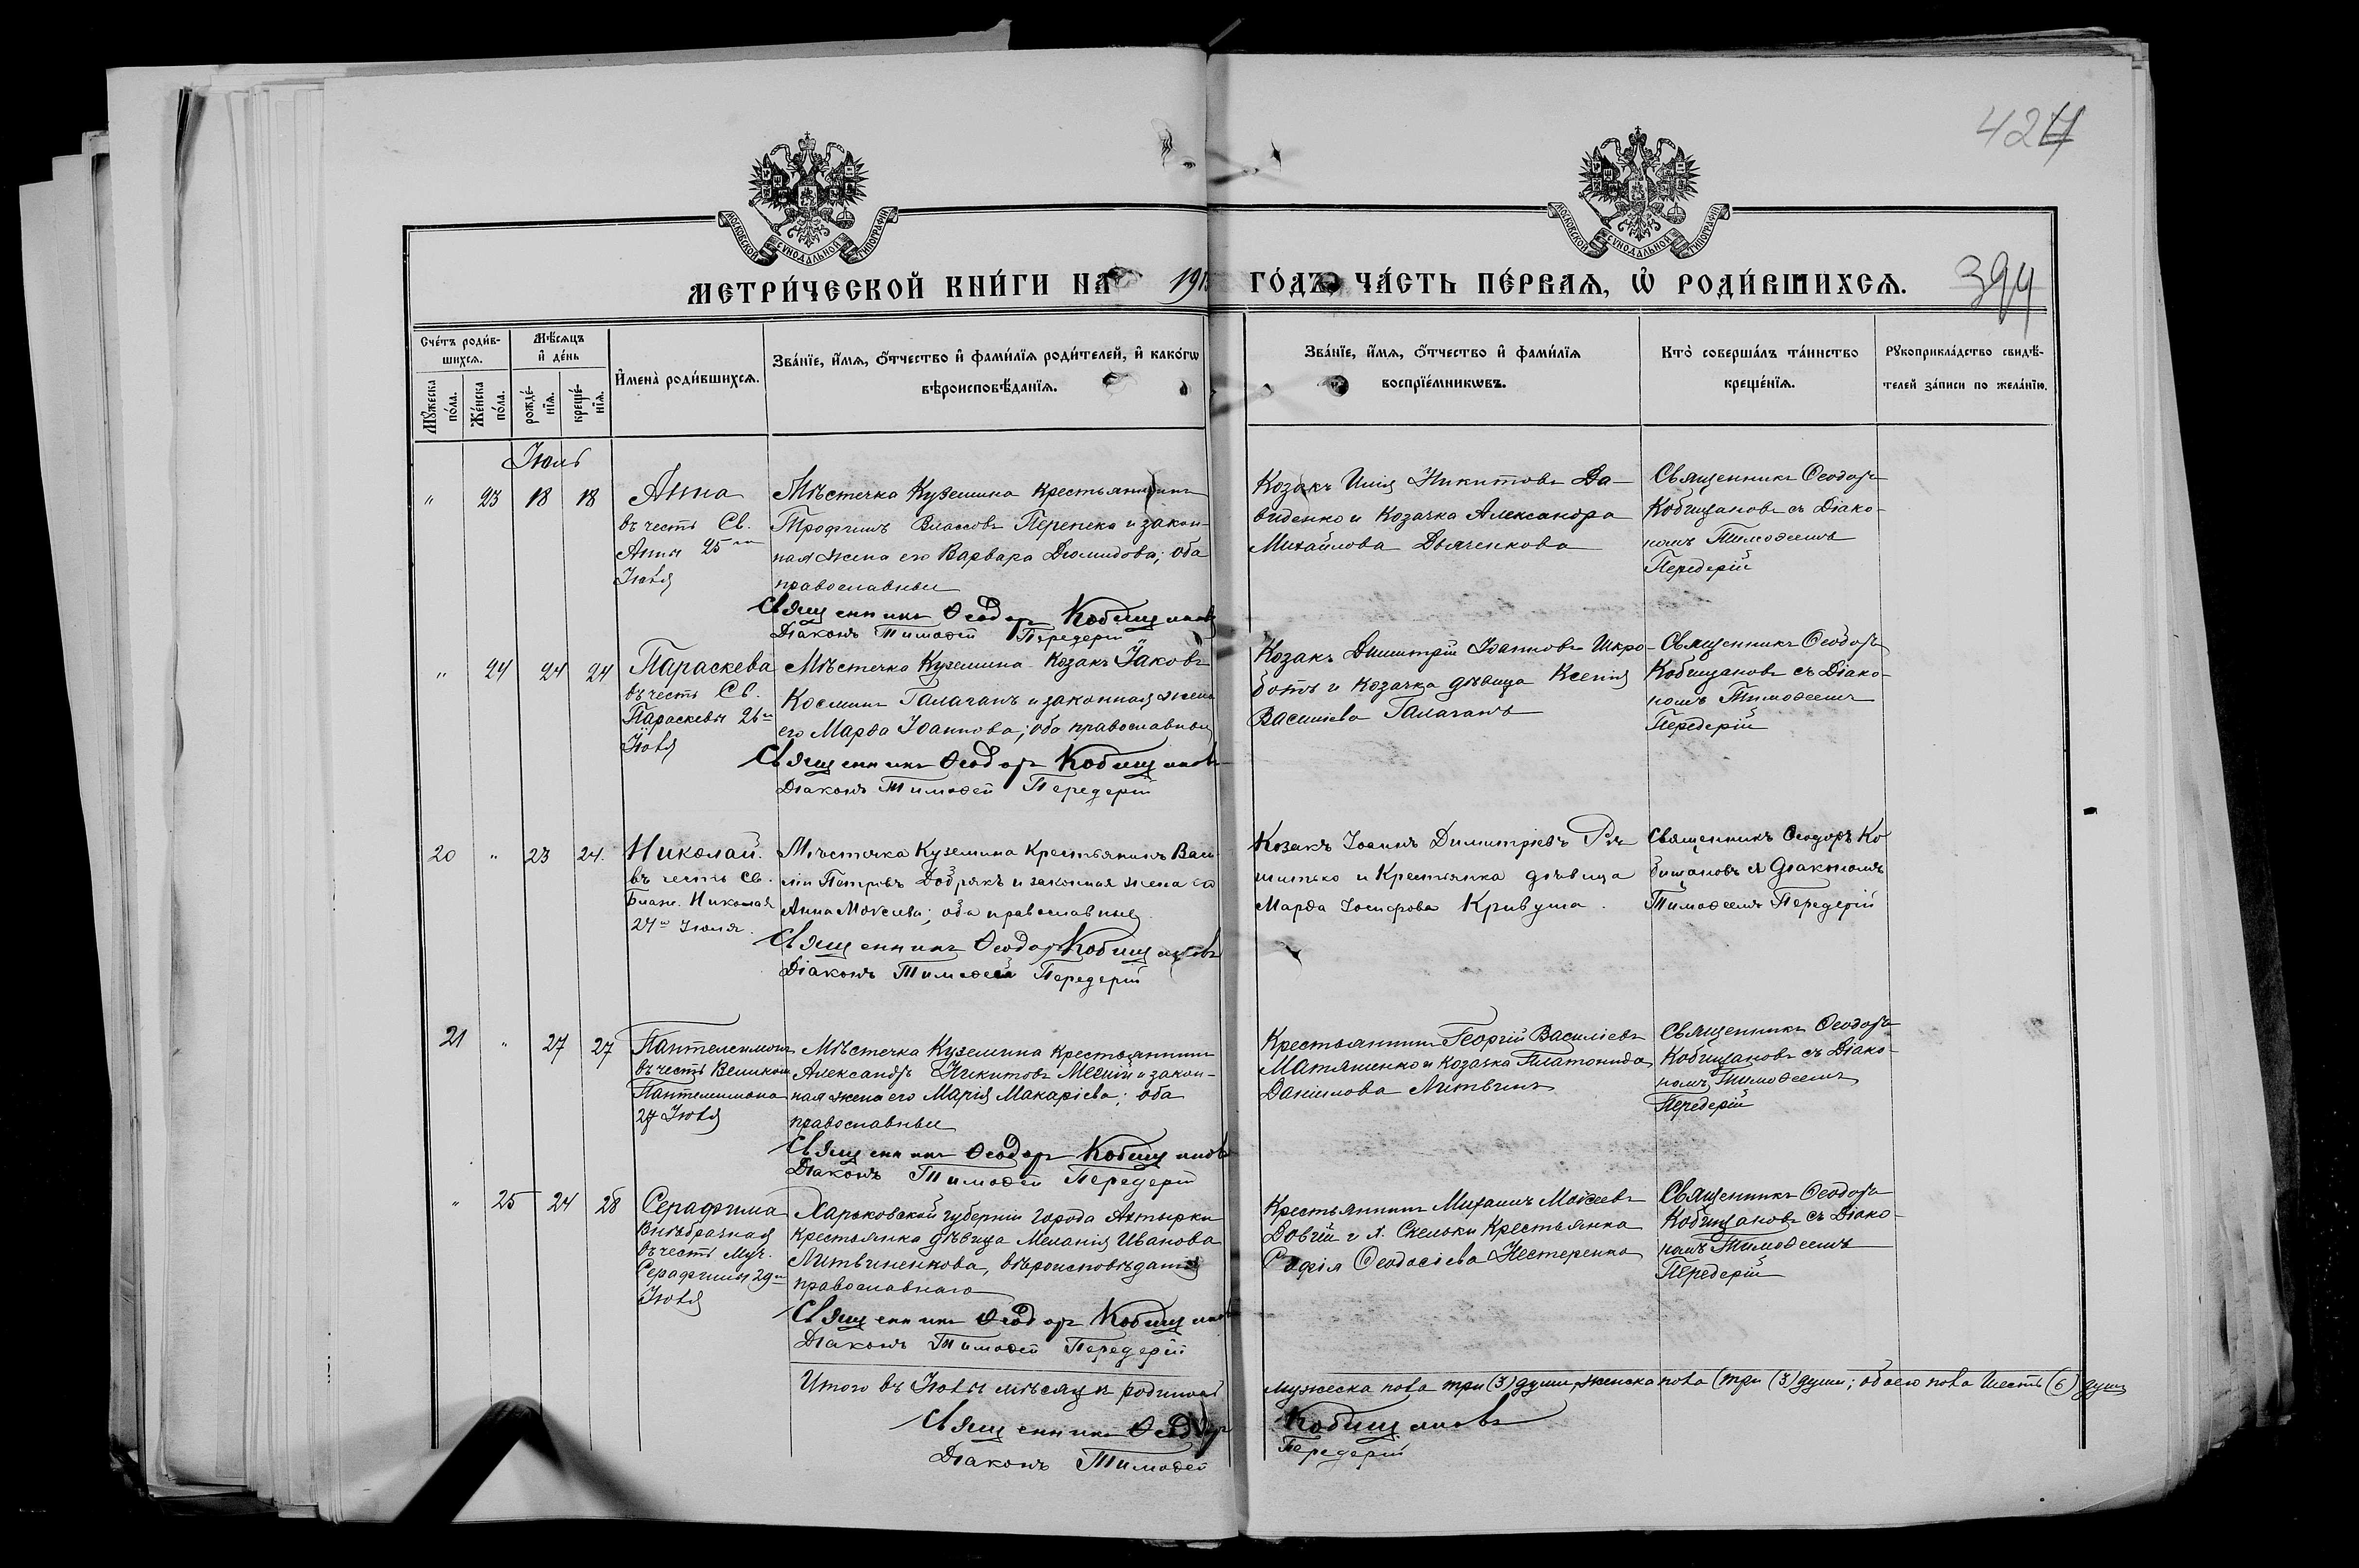 424
МОСКОВСКОЙ СѴНОДАЛЬНОЙ ТИПОГРАФІИ
МОСКОВСКОЙ СѴНОДАЛЬНОЙ ТИПОГРАФІИ
МЕТРИ́ЧЕСКОЙ КНИ́ГИ НА 191 ГО́ДЪ ЧА́СТЬ ПЕ́РВАѦ, Ѡ҆ РОДИ́ВШИХСѦ.
394
Сче́тъ роди́в-
шихсѧ.
Мꙋ́жеска
по́ла.
Же́нска
по́ла.
Мѣ́сѧцъ
и҆ де́нь
рожде́-
нїѧ.
креще́-
нїѧ.
И҆мена̀ роди́вшихсѧ.
Зва́нїе, и҆́мѧ, ѻ҆́тчество и҆ фами́лїѧ роди́телей, и҆ како́гѡ
вѣроисповѣ́данїѧ.
Зва́нїе, и҆́мѧ, ѻ҆́тчество и҆ фами́лїѧ
воспрїе́мникѡвъ.
Кто̀ соверша́лъ та́инство
креще́нїѧ.
Рꙋкоприкла́дство свидѣ́-
телей за́писи по жела́нїю.
Іюль
" 23 18 18
Анна
въ честь Св.
Анны 25го
Іюля
Мѣстечка Куземина крестьянинъ
Трофимъ Власовъ Перепека и закон-
ная жена его Варвара Діомидова; оба
православные
Священникъ Ѳеодоръ Кобищановъ
Діаконъ Тимоѳей Передерій
Козакъ Илія Никитовъ Да-
виденко и Козачка Александра
Михайлова Дьяченкова
Священникъ Ѳеодоръ
Кобищановъ съ Діако-
номъ Тимоѳеемъ
Передерій
" 24 24 24
Параскева
въ честь Св.
Параскевы 26го
Іюля
Мѣстечка Куземина Козакъ Іаковъ
Косминъ Галаганъ и законная жена
его Марѳа Іоаннова; оба православные
Священникъ Ѳеодоръ Кобищановъ
Діаконъ Тимоѳей Передерій
Козакъ Димитрій Іоанновъ Шкро-
ботъ и Козачка дѣвица Ксенія
Василіева Галаганъ
Священникъ Ѳеодоръ
Кобищановъ съ Діако-
номъ Тимоѳеемъ
Передерій
20 " 23 24.
Николай.
въ честь св.
Блаж. Николая
27го Іюля.
Мѣстечка Куземина Крестьянинъ Васи-
лій Петровъ Добрякъ и законная жена его
Анна Моѵсеева; оба православные.
Священникъ Ѳеодоръ Кобищановъ
Діаконъ Тимоѳей Передерій
Козакъ Іоаннъ Димитріевъ
и Крестьянка дѣвица
Марѳа Іосифова Кривуша.
Священникъ Ѳеодоръ Ко
бищановъ съ Діакономъ
Тимоѳеемъ Передерій
21 " 27 27
Пантелеимонъ
въ честь Великом.
Пантелеимона
27 Іюля
Мѣстечка Куземина крестьянинъ
Александръ Никитовъ и закон-
ная жена его Марія Макаріева; оба
православные
Священникъ Ѳеодоръ Кобищановъ
Діаконъ Тимоѳей Передерій
Крестьянинъ Георгій Василіевъ
Матяшенко и Козачка Платонида
Даніилова Литвинъ
Священникъ Ѳеодоръ
Кобищановъ съ Діако-
номъ Тимоѳеемъ
Передерій
" 25 24 28
Серафима
Внѣбрачная
въ честь Муч.
Серафимы 29го
Іюля
Харьковской губерніи Города Ахтырки
Крестьянка дѣвица Меланія Иванова
Литвиненкова, вѣроисповѣданія
православнаго
Священникъ Ѳеодоръ Кобищановъ
Діаконъ Тимоѳей Передерій
Крестьянинъ Михаилъ Моисеевъ
Довгій и х. Скельки Крестьянка
Софія Ѳеодосіева Нестеренко
Священникъ Ѳеодоръ
Кобищановъ съ Діако-
номъ Тимоѳеемъ
Передерій
Итого въ Іюлѣ мѣсяцѣ родилось мужеска пола три (3) души, женска пола (три (3) души; обоего пола шесть (6) душъ
Священникъ Ѳеодоръ Кобищановъ
Діаконъ Тимоѳей Передерій